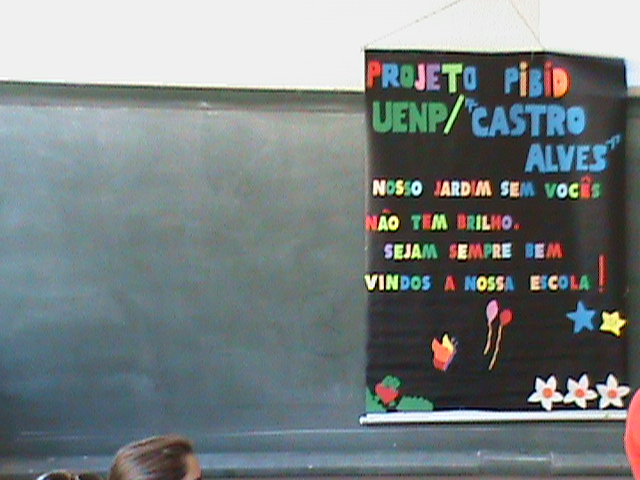 PROJETO PIBID
UENP/"CASTRO
ALVES"
NOSSO JARDIM SEM VOCÊS
NÃO TEM BRILHO.
SEJAM SEMPRE BEM
VINDOS A NOSSA ESCOLA!